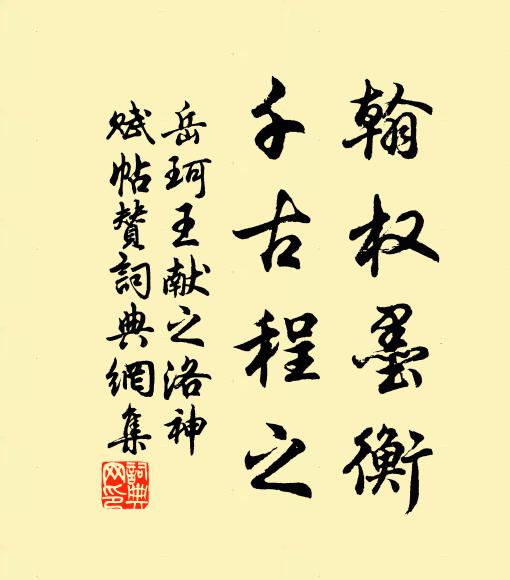 翰权墨衡
千古程之
岳珂王献之洛神
赋帖赞詞典網集
詞典网印